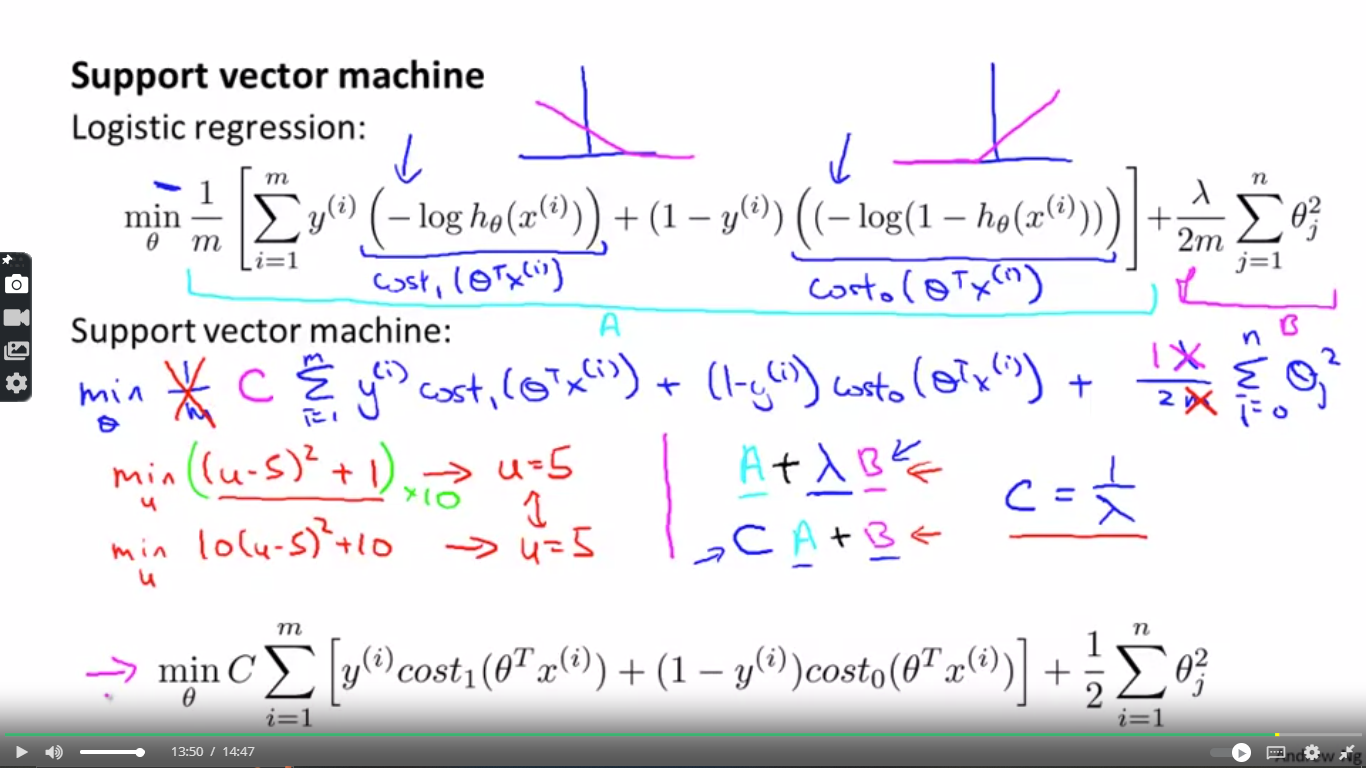 Support vector machine
Logistic regression:
min_θ 1/m [ ∑_{i=1}^{m} y^{(i)} (−log h_θ(x^{(i)})) + (1 − y^{(i)}) ((−log(1 − h_θ(x^{(i)}))) ] + λ/2m ∑_{j=1}^{n} θ_j^2
cost₁(θᵀx^{(i)}) cost₀(θᵀx^{(i)})
A B
Support vector machine:
min_θ 1/m C ∑_{i=1}^{m} y^{(i)} cost₁(θᵀx^{(i)}) + (1-y^{(i)}) cost₀(θᵀx^{(i)}) + 1 λ/2m ∑_{i=0}^{n} θ_j^2
min_u ((u-5)² + 1) ×10 → u=5
min_u 10(u-5)²+10 → u=5
A + λ B ←
→ C A + B ←
C = 1/λ
→ min_θ C ∑_{i=1}^{m} [y^{(i)}cost₁(θᵀx^{(i)}) + (1 − y^{(i)})cost₀(θᵀx^{(i)})] + 1/2 ∑_{i=1}^{n} θ_j^2
13:50 / 14:47
Andrew Ng